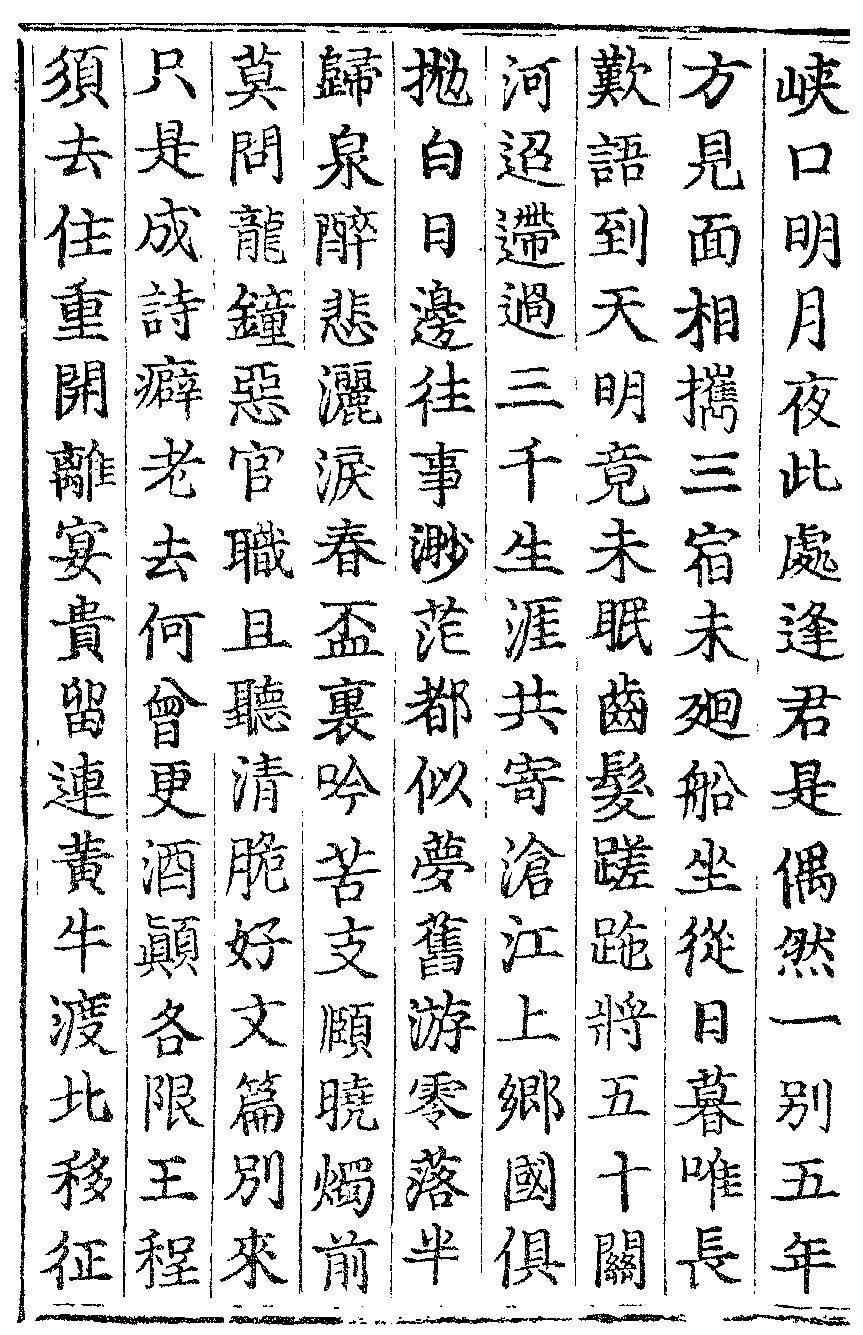 峽口明月夜此處逢君是偶然一别五年
方見面相攜三宿未廻船坐從日暮唯長
歎語到天明竟未眠齒髮蹉跎將五十關
河迢遰過三千生涯共寄滄江上鄉國俱
拋白日邊往事渺茫都似夢舊游零落半
歸泉醉悲灑淚春盃裏吟苦支頤曉燭前
莫問龍鐘惡官職且聽清脆好文篇別來
只是成詩癖老去何曾更酒顛各限王程
須去住重開離宴貴留連黃牛渡北移征